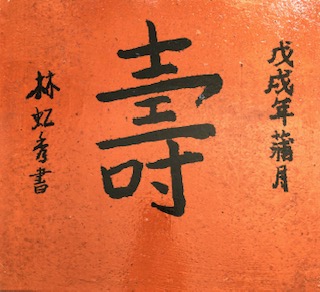 戊戌年蒲月
壽
林虹秀書